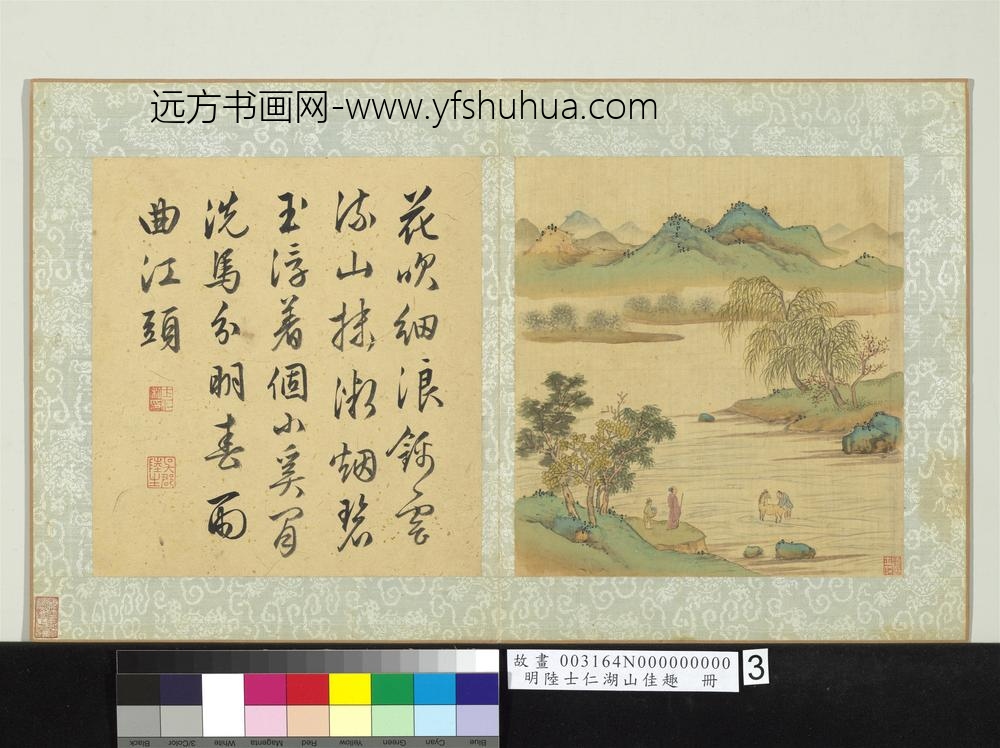 远方书画网-www.yfshuhua.com
花吹細浪錦雲
流山抹微烟碧
玉浮着個小奚閒
洗馬分明春雨
曲江頭
故畫 003164N000000000
明陸士仁湖山佳趣 冊
3
Black
3/Color
White
Magenta
Red
Yellow
Green
Cyan
Blue